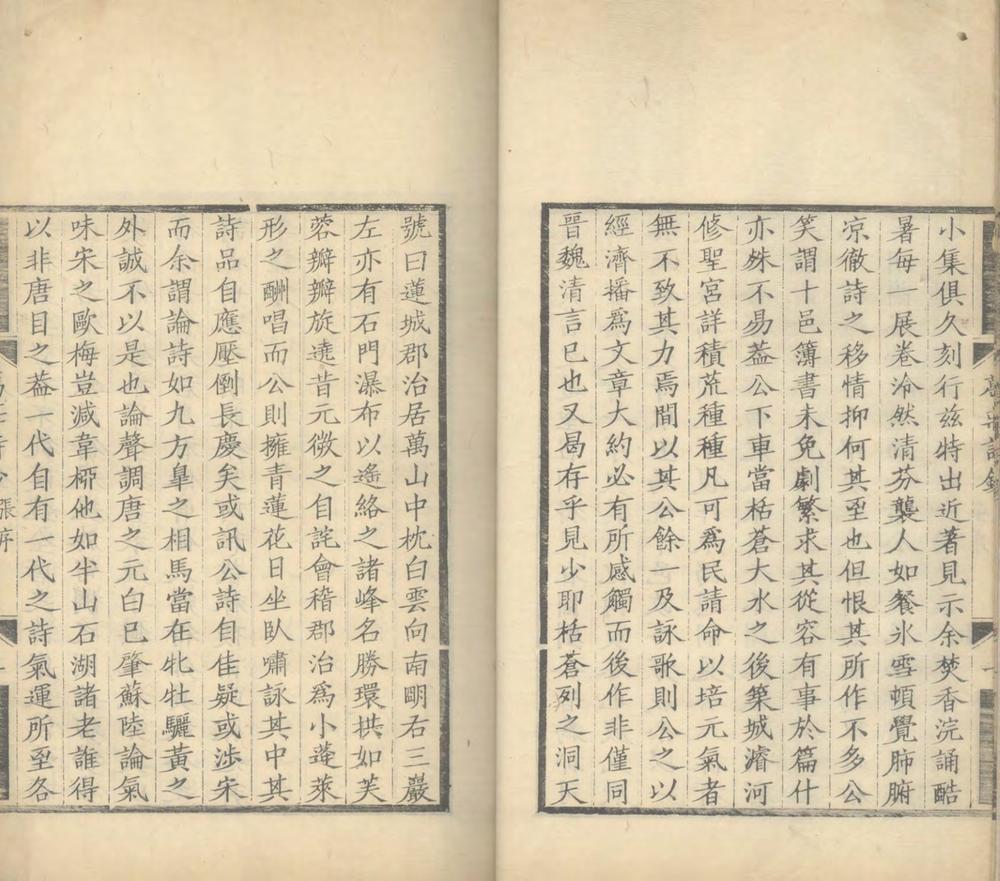 小集俱久刻行兹特出近著見示余焚香浣誦酷
暑每一展卷泠然清芬襲人如餐氷雪頓覺肺腑
凉徹詩之移情抑何其至也但恨其所作不多公
笑謂十邑簿書未免劇繁求其從容有事於篇什
亦殊不易葢公下車當栝蒼大水之後築城濬河
修聖宮詳積荒種種凡可爲民請命以培元氣者
無不致其力焉間以其公餘一及詠歌則公之以
經濟播爲文章大約必有所感觸而後作非僅同
晉魏清言已也又曷存乎見少耶栝蒼列之洞天
號曰蓮城郡治居萬山中枕白雲向南明右三巖
左亦有石門瀑布以遙絡之諸峰名勝環拱如芙
蓉瓣瓣旋遶昔元微之自詫會稽郡治爲小蓬萊
形之酬唱而公則擁青蓮花日坐臥嘯詠其中其
詩品自應壓倒長慶矣或訊公詩自佳疑或涉宋
而余謂論詩如九方臯之相馬當在牝牡驪黃之
外誠不以是也論聲調唐之元白已肇蘇陸論氣
味宋之歐梅豈減韋栁他如半山石湖諸老誰得
以非唐目之葢一代自有一代之詩氣運所至各
張序